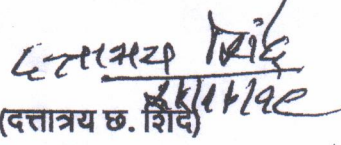 दत्तात्रय शिंदे
(दत्तात्रय छ. शिंदे)